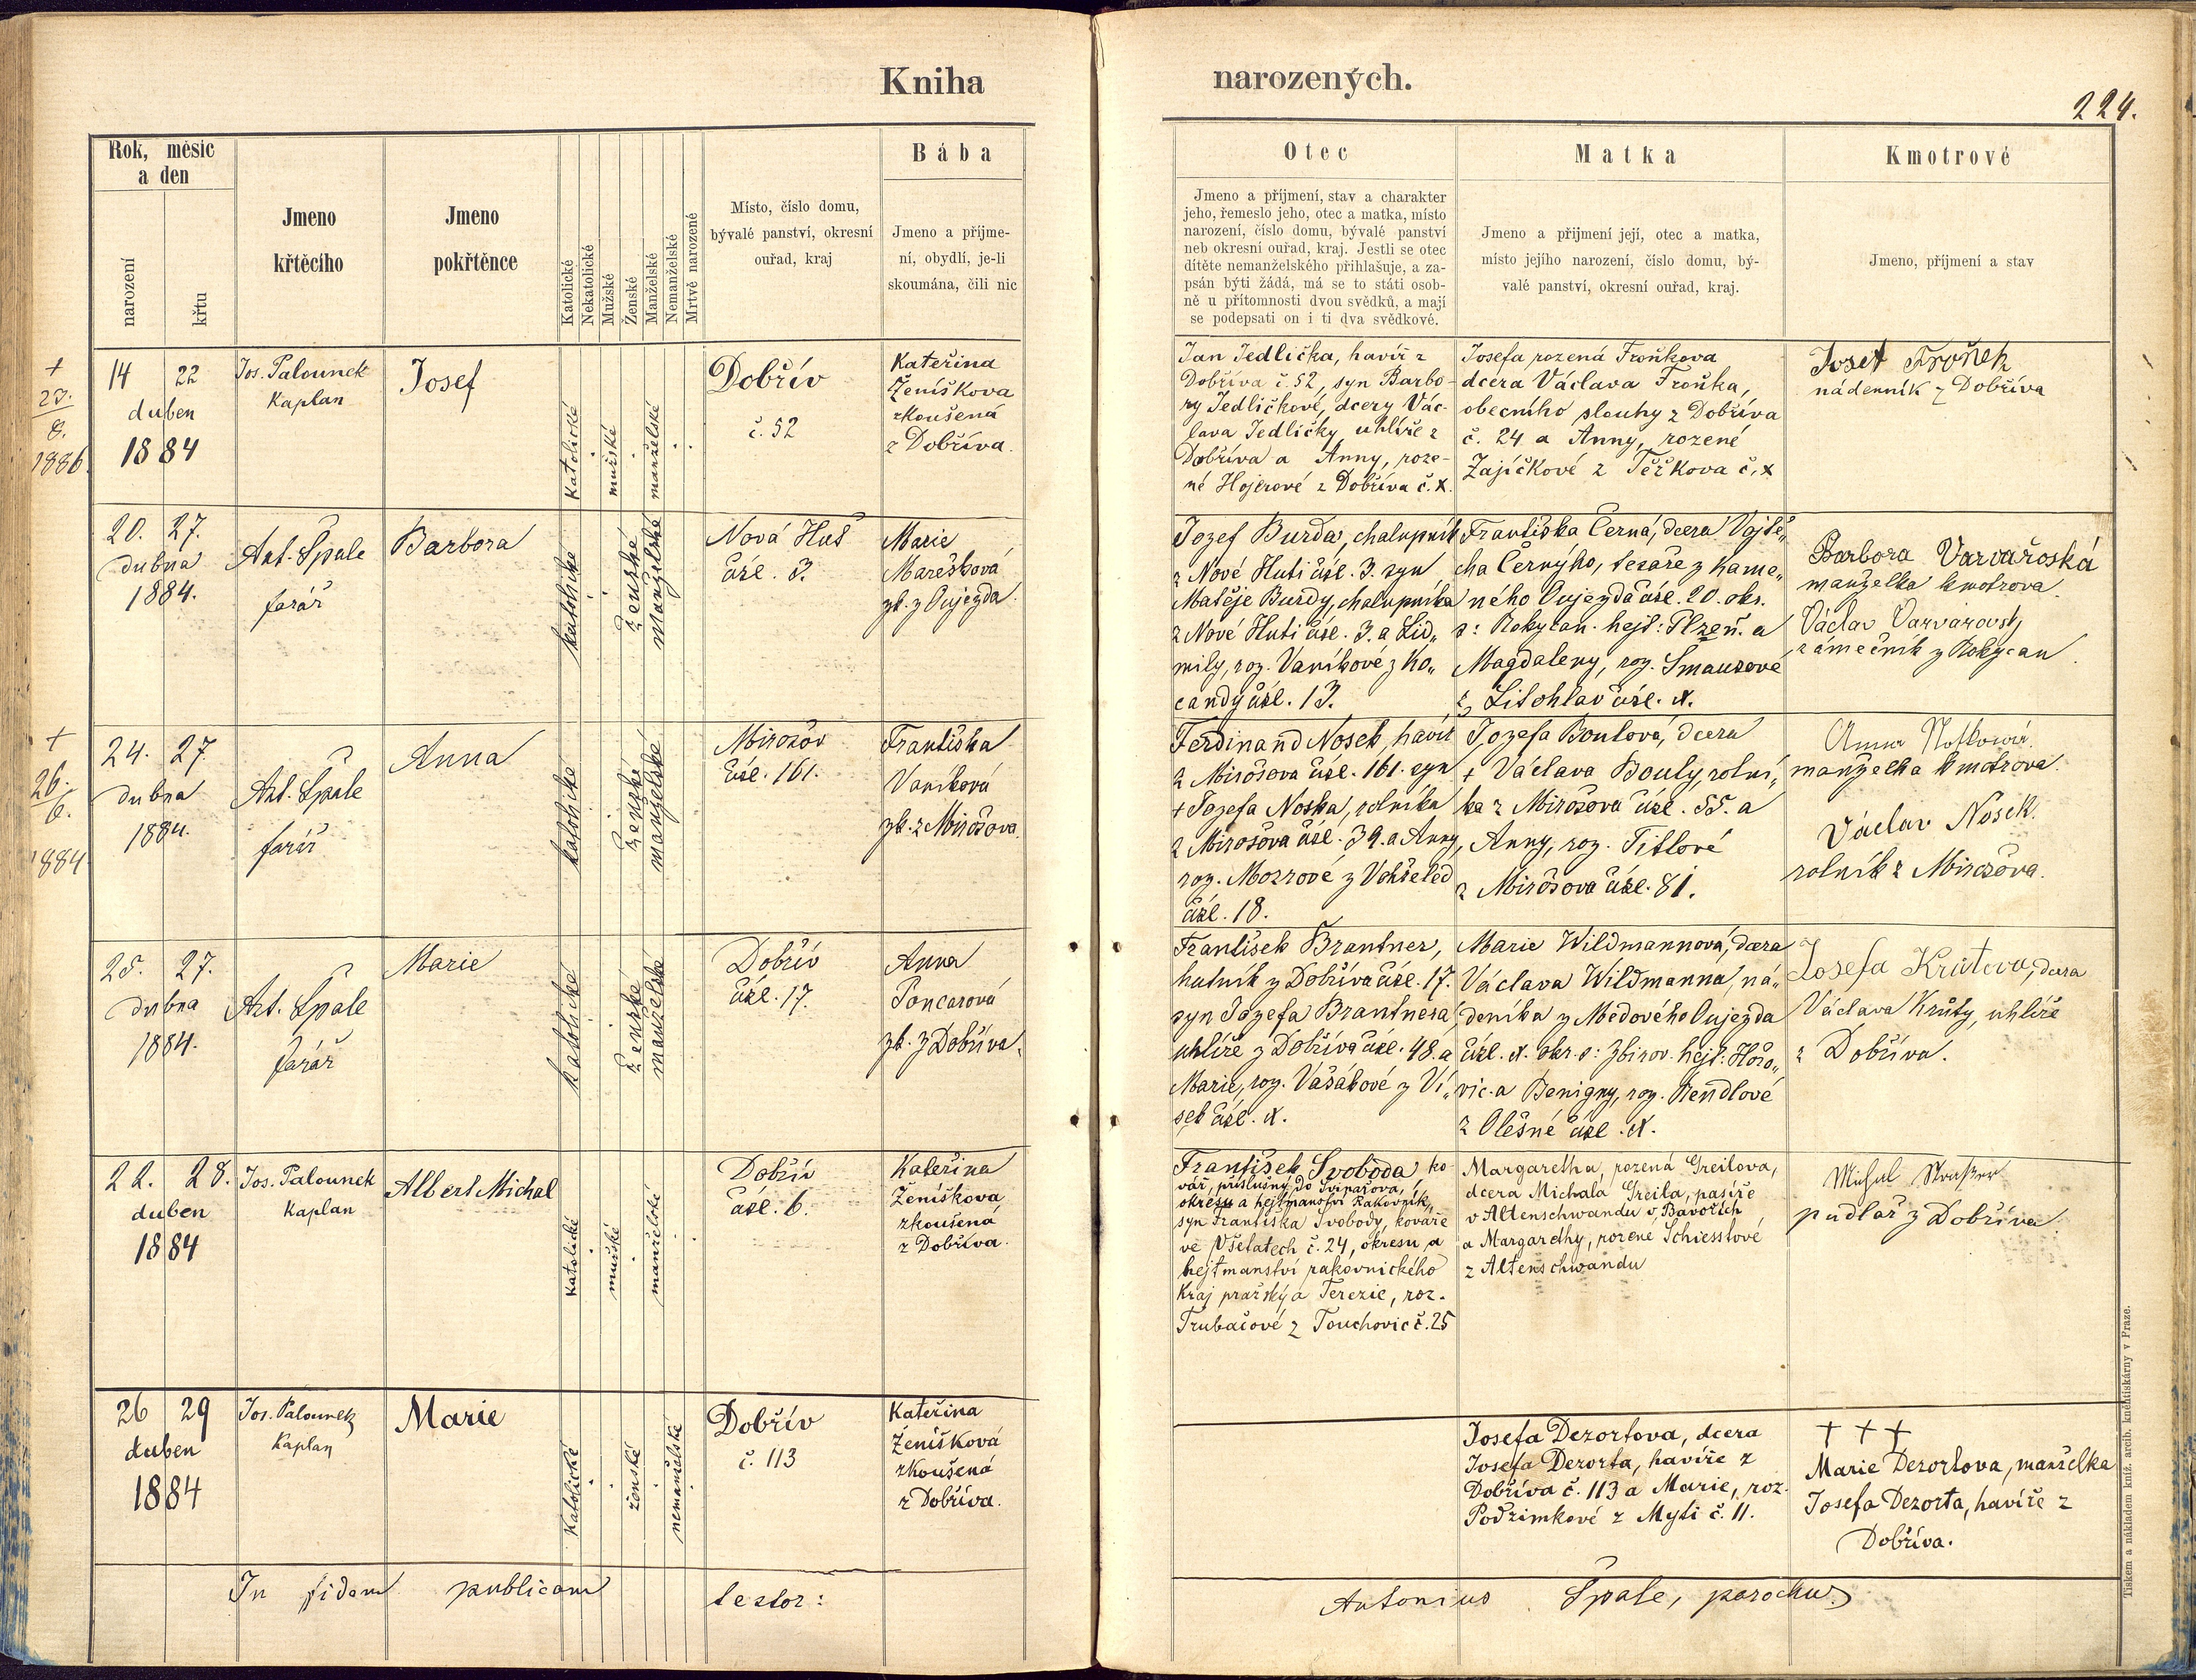 Kniha
narozených.
224.
Rok, měsíc
a den
narození
křtu
Jmeno
křtěcího
Jmeno
pokřtěnce
Katolické
Nekatolické
Mužské
Ženské
Manželské
Nemanželské
Mrtvě narozené
Místo, číslo domu,
bývalé panství, okresní
ouřad, kraj
Bába
Jmeno a příjme-
ní, obydlí, je-li
skoumána, čili nic
Otec
Jmeno a příjmení, stav a charakter
jeho, řemeslo jeho, otec a matka, místo
narození, číslo domu, bývalé panství
neb okresní ouřad, kraj. Jestli se otec
dítěte nemanželského přihlašuje, a za-
psán býti žádá, má se to státi osob-
ně u přítomnosti dvou svědků, a mají
se podepsati on i ti dva svědkové.
Matka
Jmeno a přijmení její, otec a matka,
místo jejího narození, číslo domu, bý-
valé panství, okresní ouřad, kraj.
Kmotrové
Jmeno, příjmení a stav
+
23.
8.
1886.
14 22
duben
1884
Jos. Palounek
Kaplan
Josef
katolické
mužské
manželské
Dobřív
č. 52
Kateřina
Ženíškova
zkoušená
z Dobříva.
Jan Jedlička, havíř z
Dobříva č. 52, syn Barbo-
ry Jedličkové, dcery Vác-
lava Jedličky, uhlíře z
Dobříva a Anny, roze-
né Hojerové z Dobříva č. x.
Josefa rozená Froňkova
dcera Václava Froňka,
obecního slouhy z Dobříva
č. 24 a Anny, rozené
Zajíčkové z Těškova č. x
Josef Froňek
nádenník z Dobříva
20. 27.
dubna
1884.
Ant. Špale
farář
Barbora
katolické
ženské
manželské
Nová Huť
čísl. 3.
Marie
Marešková
zk. z Oujezda
Jozef Burda, chalupník
z Nové Huti čísl. 3. syn
Matěje Burdy, chalupníka
z Nové Huti čísl. 3. a Lid„
mily, roz. Vaníkové z Ko„
candy čísl. 13.
Františka Černá, dcera Vojtě„
cha Černýho, tesaře z Kame„
ného Oujezda čísl. 20. okr.
s: Rokycan. hejt: Plzeň. a
Magdaleny, roz. Šmausové
z Litohlav čísl. x.
Barbora Varvařoská
manželka kmotrova.
Václav Varvařovský
zámečník z Rokycan.
+
26.
6.
1884
24. 27.
dubna
1884.
Ant. Špale
farář
Anna
katolické
ženské
manželské
Mirošov
čísl. 161.
Františka
Vaníková
zk. z Mirošova.
Ferdinand Nosek, havíř
z Mirošova čísl. 161. syn
+ Jozefa Noska, rolníka
z Mirošova čísl. 39. a Anny,
roz. Mozrové z Vchřeled
čísl. 18.
Jozefa Boulová, dcera
+ Václava Bouly, rolní„
ka z Mirošova čísl. 55. a
Anny, roz. Titlové
z Mirošova čísl. 81.
Anna Nosková.
manželka kmotrova.
Václav Nosek.
rolník z Mirošova.
25. 27.
dubna
1884.
Ant. Špale
farář
Marie
katolické
ženské
manželské
Dobřív
čísl. 17.
Anna
Poncarová
zk. z Dobříva.
František Brantner,
hutník z Dobříva čísl. 17.
syn Jozefa Brantnera,
uhlíře z Dobříva čísl. 48. a
Marie, roz. Vašákové z Ví„
sek čísl. x.
Marie Wildmannová, dcera
Václava Wildmanna, ná„
deníka z Medového Oujezda
čísl. x. okr. s: Zbirov. hejt: Hořo„
vic. a Benigny, roz. Rendlové
z Olešné čísl. x.
Josefa Krůtova, dcera
Václava Krůty, uhlíře
z Dobříva.
22. 28.
duben
1884
Jos. Palounek
Kaplan
Albert Michal
katolické
mužské
manželské
Dobřív
čísl. 6.
Kateřina
Ženíškova
zkoušená
z Dobříva.
František Svoboda, ko
vář, příslušný do Svinařova,
okresu a hejtmanství Rakovník,
syn Františka Svobody, kováře
ve Všetatech č. 24, okresu a
hejtmanství rakovnického
kraj pražský a Terezie, roz.
Trubačové z Touchovic č. 25
Margaretha, rozená Greilova,
dcera Michala Greila, pasíře
v Altenschwandu v Bavořích
a Margarethy, rozené Schiesslové
z Altenschwandu
Michal
pudlař z Dobříva.
26 29
duben
1884
Jos. Palounek
Kaplan
Marie
katolické
ženské
nemanželské
Dobřív
č. 113
Kateřina
Ženíšková
zkoušená
z Dobříva.
Josefa Dezortova, dcera
Josefa Dezorta, havíře z
Dobříva č. 113 a Marie, roz.
Podzimkové z Mýti č. 11.
+ + +
Marie Dezortova, manželka
Josefa Dezorta, havíře z
Dobříva.
In fidem publicam testor:
Antonius Špale, parochus
Tiskem a nákladem kníž. arcib. knihtiskárny v Praze.